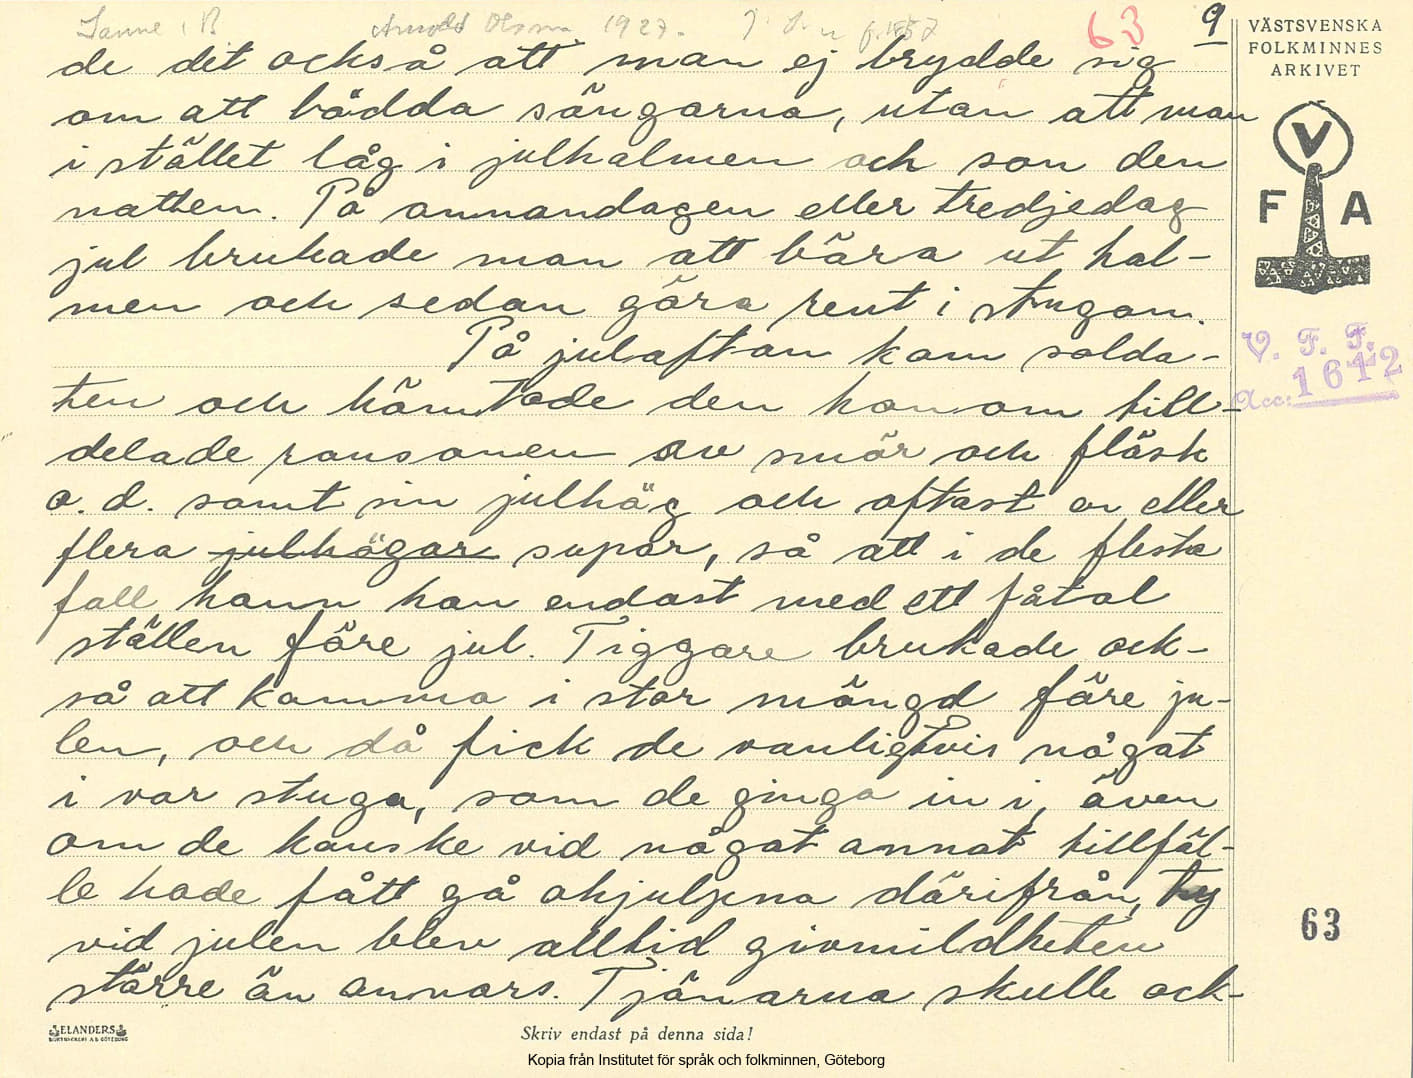 Sanne, B. Arnold Olsson 1927. 63 9
de dit också att man ej brydde sig
om att bädda sängarna, utan att man
i stället låg i julhalmen och sov den
natten. På annandagen eller tredjedag
jul brukade man att bära ut hal-
men och sedan göra rent i stugan.
På julaftan kom solda-
ten och hämtade den honom till-
delade ransonen av smör och fläsk
o. d. samt sin julhög och oftast en eller
flera julhögar supar, så att i de flesta
fall hann han endast med ett fåtal
ställen före jul. Tiggare brukade ock-
så att komma i stor mängd före ju-
len, och då fick de vanligtvis något
i var stuga, som de gingo in i, även
om de kanske vid något annat tillfäl-
le hade fått gå ohjulpna därifrån, ty
vid julen blev alltid givmildheten
större än annars. Tjänarna skulle ock-
VÄSTSVENSKA
FOLKMINNES
ARKIVET
V
F A
V. F. F.
Acc: 1612
63
ELANDERS
BOKTRYCKERI A.B. GÖTEBORG
Skriv endast på denna sida!
Kopia från Institutet för språk och folkminnen, Göteborg